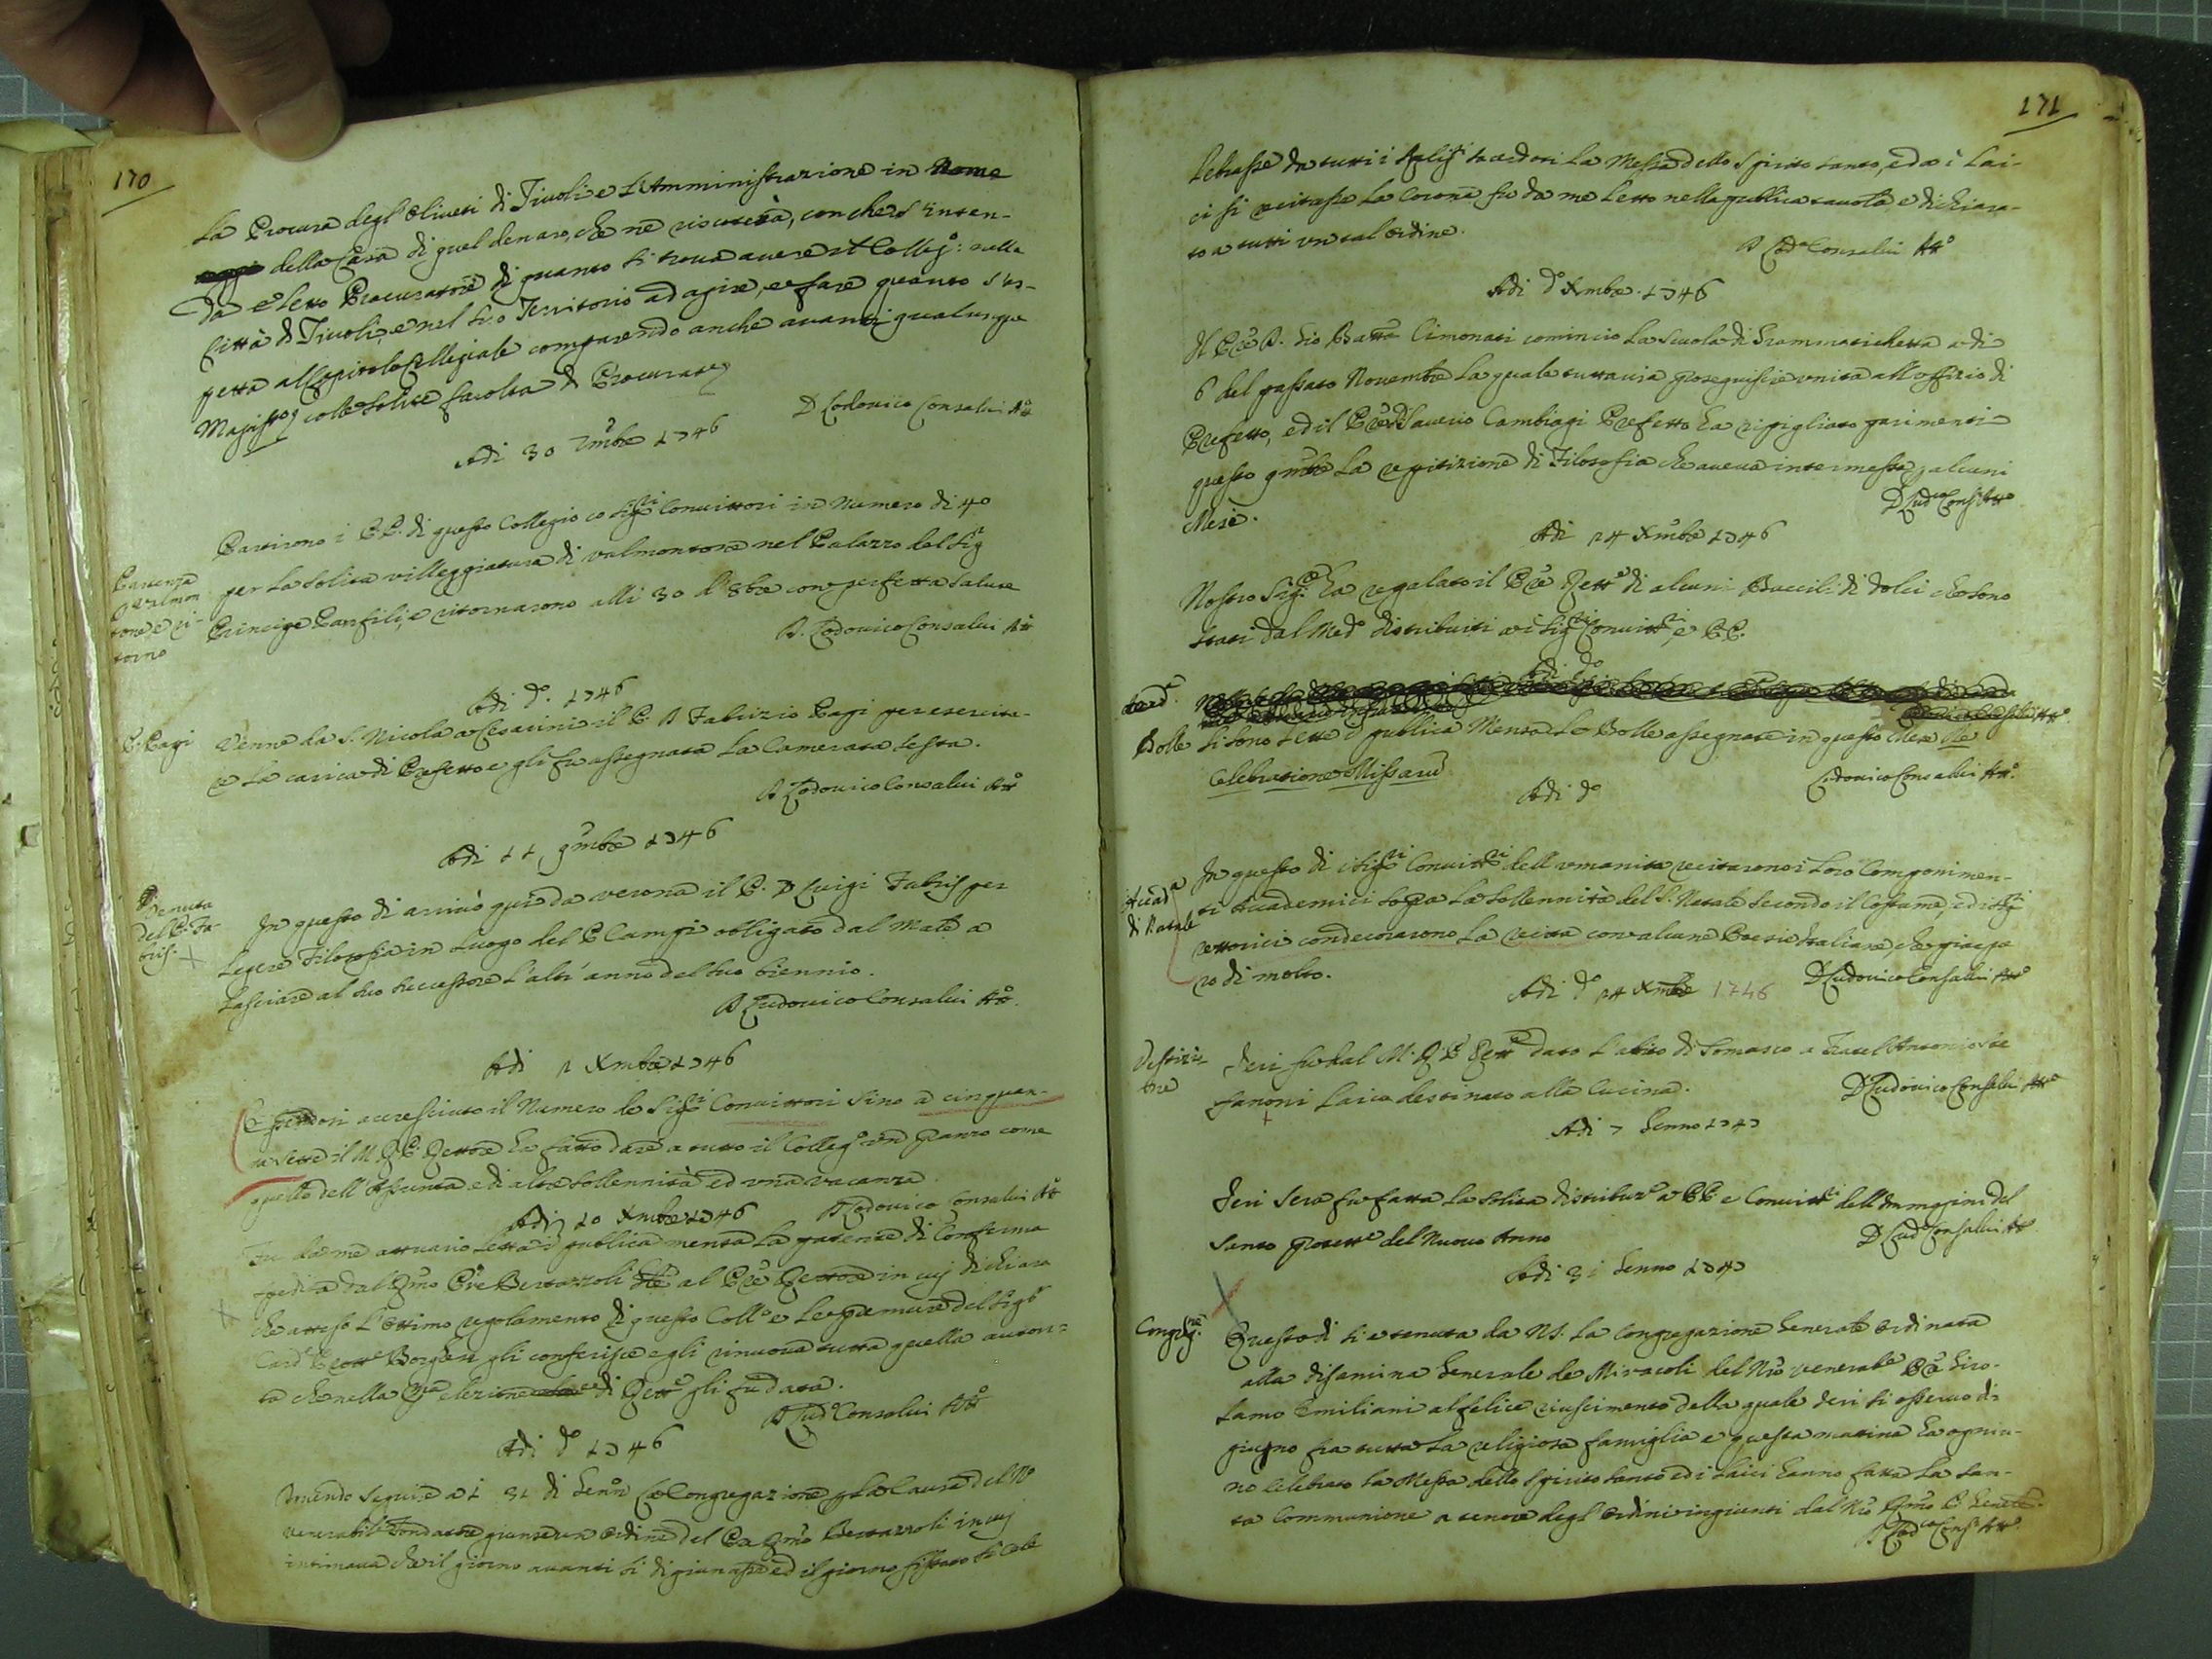 170
La Procura degl'Oliveti di Tivoli e L'Amministrazione in Nome
della Casa di quel denaro, che ne riscuterà, con che s'inten-
da eletto Procuratore di quanto si trova avere il Colleg:o nella
Città di Tivoli, e nel suo Territorio ad agire, e fare quanto s'as-
petta al Capitolo Collegiale comparendo anche avanti qualunque
Magist.o colle solite facoltà di Procurat.
D Lodovico Consalvi Att.o
Adi 30 7mbre 1746
Partenza
p Valmon
tone, e ri-
torno
Partirono i PP. di questo Collegio co Sig.ri Convittori in Numero di 40
per la solita villeggiatura di valmontone nel Palazzo del Sig.r
Principe Panfili, e ritornarono alli 30 d'8bre con perfetta salute
D. Lodovico Consalvi Att.o
Adi d.o 1746
P. Pagi
Venne da S. Nicola a Cesarini il P. D Fabrizio Pagi per esercita-
re la carica di Prefetto e gli fu assegnata La Camerata sesta.
D Lodovico Consalvi Att.o
Adi 11 9mbre 1746
Venuta
del P. Fa-
bris.
In questo di arrivò quì da verona il P. D Luigi Fabris per
Legere Filosofia in Luogo del P Campi obligato dal Male a
Lasciare al suo successore l'altr'anno del suo biennio.
D Ludovico Consalvi Att.o
Adi 2 Xmbre 1746
Essendosi accresciuto il Numero de Sig.ri Convittori sino a cinquan-
ta sette il M. R. P. Rettore ha fatto dare a tutto il Colleg.o un Pranzo come
quello dell'Assunta e di altre sollennità ed una vacanza.
D Lodovico Consalvi Att.o
Adi 10 Xmbre 1746
Fu da me attuario Letta in publica mensa La patente di Conferma
spedita dal Rmo Pre Bertazzoli al Pre Rettore in cui dichiara
che atteso L'ottimo regolamento di questo Coll.o e le premure del Sig.r
Card.e Prott.e Borghesi gli conferisce e gli rinuova tutta quella autori-
tà che nella Pma elezione di Rett.e gli fu data.
D Lud.o Consalvi Att.o
Adi d.o 1746
Dovendo seguire a L 31 di Genn.o La Congregazione p La Causa del N.o
Venerabil Fondatore giunse un ordine del Pre Rmo Bertazzoli in cui
intimava che il giorno avanti si digiunasse ed il giorno fissato si Cele
171
lebrasse da tutti i Relig.i sacerdoti La Messa dello Spirito santo, e da i Lai-
ci si recitasse La Corona fu da me Letto nella publica tavola, e dichiara-
to a tutti un tal ordine.
D Lod.o Consalvi Att.o
Adi d.o Xmbre 1746
Il Pre D. Gio Batta Cimonati cominciò La Scuola di Grammatichetta a di
6 del passato Novembre La quale tuttavia proseguisce unita all'offizio di
Prefetto, ed il Pre D Saverio Cambiagi Prefetto ha ripigliato parimenti
questo 9mbre La repitizione di Filosofia che aveva intermessa p alcuni
Mesi.
D Lud.co Cons.i Att.o
Adi 24 Xmbre 1746
Nostro Sig.re ha regalato il Pre Rett.e di alcuni Baccili di dolci che sono
stati dal Med.o distribuiti a i Sig.ri Convitt.ri, e PP.
Adi d.o
Bolle
Si sono Lette in publica Mensa Le Bolle assegnate in questo Mese De
Celebratione Missarum
Lodovico Consalvi Att.o
Adi d.o
Accad.a
di Natale
In questo di i Sig.ri Convitt.ri dell'umanità recitarono i Loro Componimen-
ti Accademici sopra La sollennità del S. Natale secondo il Costume, ed i Sig.ri
rettorici condecorarono La recita con alcune Poesie Italiane, che piacque
ro di molto.
D Ludovico Consalvi Att.o
Adi d.o 24 Xmbre 1746
Vestizio
ne
Ieri fu dal M. R. P. Rett.e dato L'abito di Somasco a Fratel Antonio Ste
fanoni Laico destinato alla Cucina.
D Ludovico Consalvi Att.o
Adi 7 Genno 1747
Ieri sera fu fatta La solita distribuz.e a PP. e Convitt.ri dell'Immagini del
Santo Protett.e del Nuovo Anno
D Lud.o Consalvi Att.o
Adi 31 Genno 1747
Congreg.ne
Questo di si è tenuta da NS. La Congregazione Generale ordinata
alla disamina Generale de Miracoli del Nro Venerabe Pre Giro-
lamo Emiliani al felice riuscimento della quale Ieri si osservò di-
giugno fra tutta La religiosa famiglia e questa matina ha ogniu-
no celebrato La Messa dello Spirito santo ed i Laici hanno fatta La San-
ta Communione a tenore degl'ordini ingiunti dal Nro Rmo P. Generale.
D Lod.co Cons.i Att.o